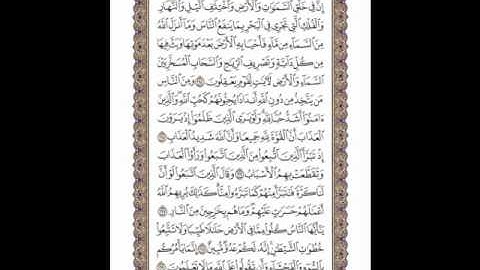 إِنَّ فِي خَلْقِ ٱلسَّمَٰوَٰتِ وَٱلْأَرْضِ وَٱخْتِلَٰفِ ٱلَّيْلِ وَٱلنَّهَارِ
وَٱلْفُلْكِ ٱلَّتِي تَجْرِي فِي ٱلْبَحْرِ بِمَا يَنفَعُ ٱلنَّاسَ وَمَآ أَنزَلَ ٱللَّهُ
مِنَ ٱلسَّمَآءِ مِن مَّآءٍ فَأَحْيَا بِهِ ٱلْأَرْضَ بَعْدَ مَوْتِهَا وَبَثَّ فِيهَا
مِن كُلِّ دَآبَّةٍ وَتَصْرِيفِ ٱلرِّيَٰحِ وَٱلسَّحَابِ ٱلْمُسَخَّرِ بَيْنَ
ٱلسَّمَآءِ وَٱلْأَرْضِ لَأٓيَٰتٍ لِّقَوْمٍ يَعْقِلُونَ ١٦٤ وَمِنَ ٱلنَّاسِ
مَن يَتَّخِذُ مِن دُونِ ٱللَّهِ أَندَادًا يُحِبُّونَهُمْ كَحُبِّ ٱللَّهِ وَٱلَّذِينَ
ءَامَنُوٓا۟ أَشَدُّ حُبًّا لِّلَّهِ وَلَوْ يَرَى ٱلَّذِينَ ظَلَمُوٓا۟ إِذْ يَرَوْنَ
ٱلْعَذَابَ أَنَّ ٱلْقُوَّةَ لِلَّهِ جَمِيعًا وَأَنَّ ٱللَّهَ شَدِيدُ ٱلْعَذَابِ ١٦٥
إِذْ تَبَرَّأَ ٱلَّذِينَ ٱتُّبِعُوا۟ مِنَ ٱلَّذِينَ ٱتَّبَعُوا۟ وَرَأَوُا۟ ٱلْعَذَابَ
وَتَقَطَّعَتْ بِهِمُ ٱلْأَسْبَابُ ١٦٦ وَقَالَ ٱلَّذِينَ ٱتَّبَعُوا۟ لَوْ أَنَّ
لَنَا كَرَّةً فَنَتَبَرَّأَ مِنْهُمْ كَمَا تَبَرَّءُوا۟ مِنَّا كَذَٰلِكَ يُرِيهِمُ ٱللَّهُ
أَعْمَٰلَهُمْ حَسَرَٰتٍ عَلَيْهِمْ وَمَا هُم بِخَٰرِجِينَ مِنَ ٱلنَّارِ ١٦٧
يَٰٓأَيُّهَا ٱلنَّاسُ كُلُوا۟ مِمَّا فِي ٱلْأَرْضِ حَلَٰلًا طَيِّبًا وَلَا تَتَّبِعُوا۟
خُطُوَٰتِ ٱلشَّيْطَٰنِ إِنَّهُۥ لَكُمْ عَدُوٌّ مُّبِينٌ ١٦٨ إِنَّمَا يَأْمُرُكُم
بِٱلسُّوٓءِ وَٱلْفَحْشَآءِ وَأَن تَقُولُوا۟ عَلَى ٱللَّهِ مَا لَا تَعْلَمُونَ ١٦٩